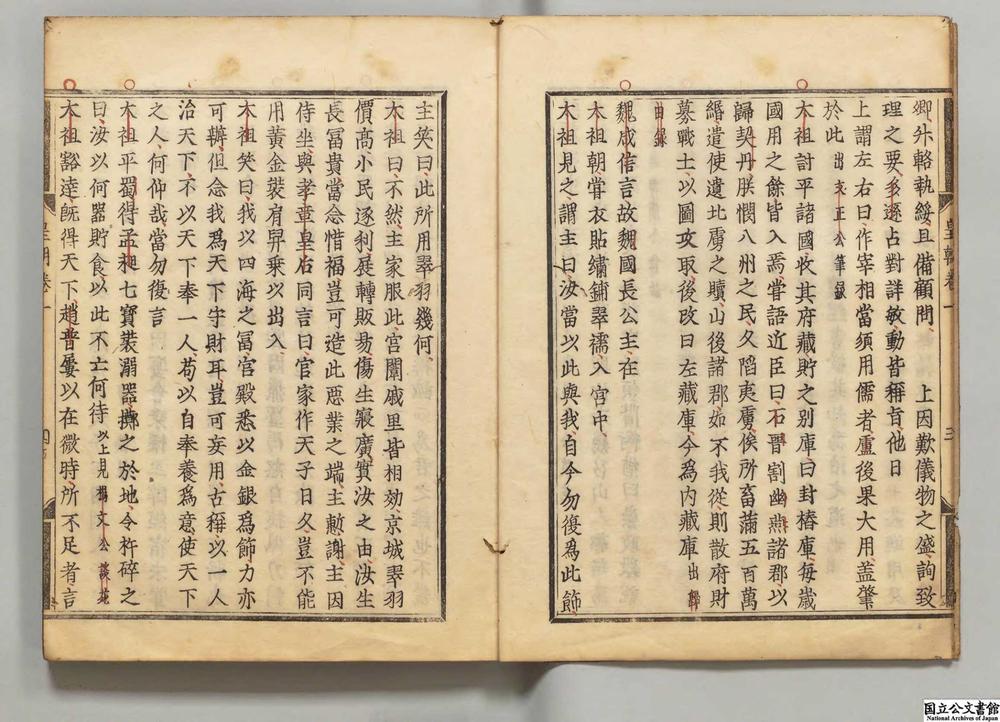 卿升輅執綏且備顧問　上因歎儀物之盛詢致
理之要多遜占對詳敏動皆稱旨他日
上謂左右曰作宰相當須用儒者盧後果大用盖肇
於此出文正公筆録
太祖討平諸國收其府藏貯之别庫曰封樁庫每歲
國用之餘皆入焉嘗語近臣曰石晋割幽燕諸郡以
歸契丹朕憫八州之民久陷夷虜俟所畜蒲五百萬
緡遣使遺北虜之贖山後諸郡如不我從則散府財
募戰士以圖攻取後改曰左藏庫今為内藏庫出
田録
魏咸信言故魏國長公主在
太祖朝嘗衣貼繡鋪翠襦入宫中
太祖見之謂主曰汝當以此與我自今勿復爲此飾
皇朝卷一
三
主笑曰此所用翠羽幾何
太祖曰不然主家服此宫闈戚里皆相効京城翠羽
價高小民逐利展轉販昜傷生寖廣實汝之由汝生
長冨貴當念惜福豈可造此惡業之端主慙謝主因
侍坐與孝章皇后同言曰官家作天子日久豈不能
用黄金裝肩舁乗以出入
太祖笑曰我以四海之冨宫殿悉以金銀爲飾力亦
可辦但念我爲天下守財耳豈可妄用古稱以一人
治天下不以天下奉一人苟以自奉養爲意使天下
之人何仰哉當勿復言
太祖平蜀得孟昶七寶裝溺器擲之於地令杵碎之
曰汝以何器貯食以此不亡何待以上見楊文公談苑
太祖豁達旣得天下趙普屢以在微時所不足者言
皇朝卷一
四
国立公文書館
National Archives of Japan